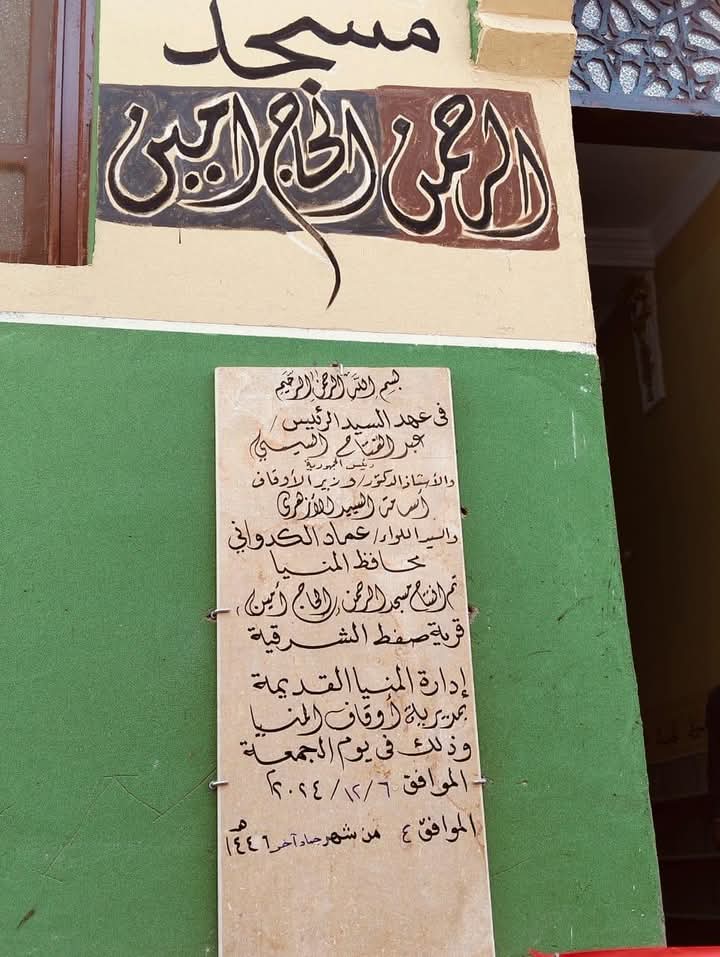 مسجد
الرحمن الحاج امين
بسم الله الرحمن الرحيم
فى عهد السيد الرئيس /
عبد الفتاح السيسي
رئيس الجمهورية
والأستاذ الدكتور / وزير الأوقاف
أسامة السيد الأزهرى
والسيد اللواء / عماد الكدواني
محافظ المنيا
تم افتتاح مسجد الرحمن (الحاج أمين)
قرية صفط الشرقية
إدارة المنيا القديمة
بمديرية أوقاف المنيا
وذلك فى يوم الجمعة
الموافق ٦ / ١٢ / ٢٠٢٤م
الموافق ٤ من شهر جماد آخر ١٤٤٦هـ